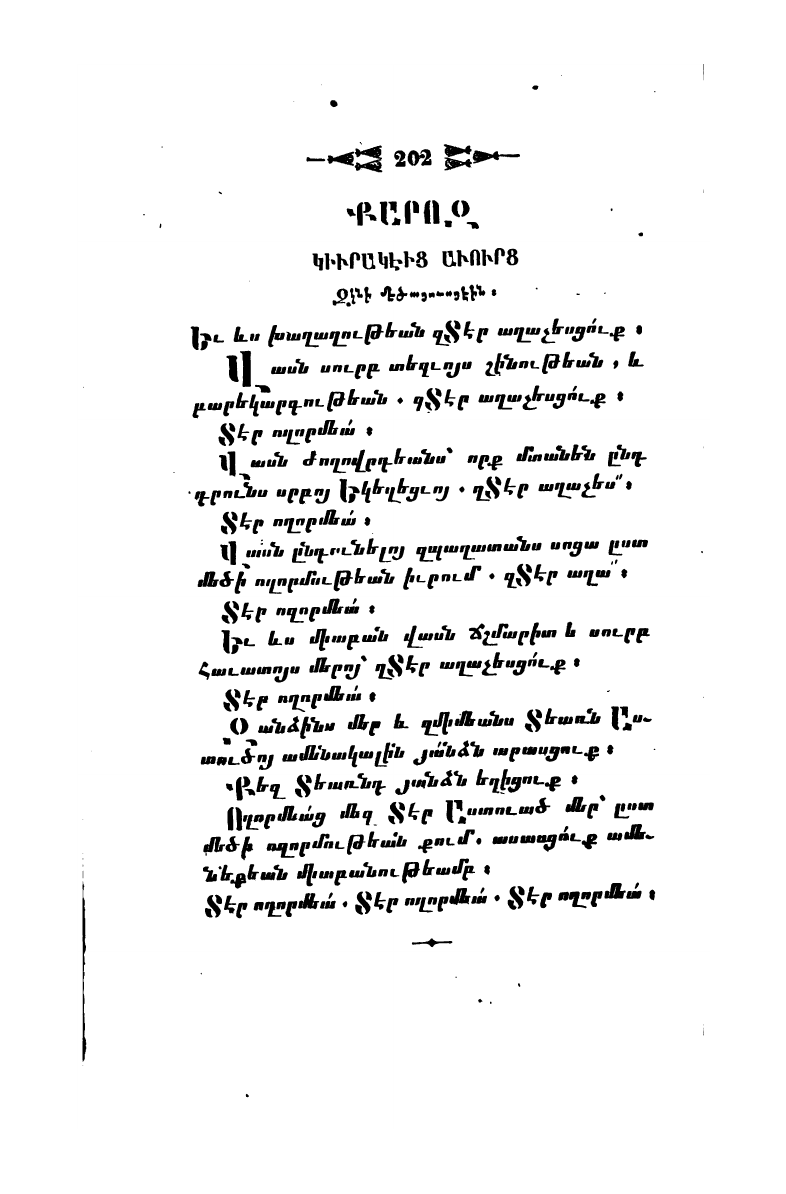 202
ՔԱՐՈԶ
ԿԻՒՐԱԿԷԻՑ ԱՒՈՒՐՑ
Եւ ևս խաղաղութեան զՏէր աղաչեսցո՛ւք ։
Վասն սուրբ տեղւոյս շինութեան , և
բարեկարգութեան . զՏէր աղաչեսցո՛ւք ։
Տէր ողորմեա՛ ։
Վասն ժողովրդեանս՝ որք մտանեն ընդ
դրունս սրբոյ Եկեղեցւոյ . զՏէր աղաչես՟ ։
Տէր ողորմեա՛ ։
Վասն ընդունելոյ զպաղատանս սոցա ըստ
մեծի ողորմութեան իւրում . զՏէր աղա՟ ։
Տէր ողորմեա՛ ։
Եւ ևս միաբան վասն ճշմարիտ և սուրբ
Հաւատոյս մերոյ՝ զՏէր աղաչեսցո՛ւք ։
Տէր ողորմեա՛ ։
Զանձինս մեր և զմիմեանս Տեառն Աս-
տուծոյ ամենակալին յանձն արասցուք ։
Քեզ Տեառնդ յանձն եղիցուք ։
Ողորմեա՛ց մեզ Տէր Աստուած մեր՝ ըստ
մեծի ողորմութեան քում . ասասցո՛ւք ամե-
նեքեան միաբանութեամբ ։
Տէր ողորմեա՛ . Տէր ողորմեա՛ . Տէր ողորմեա՛ ։